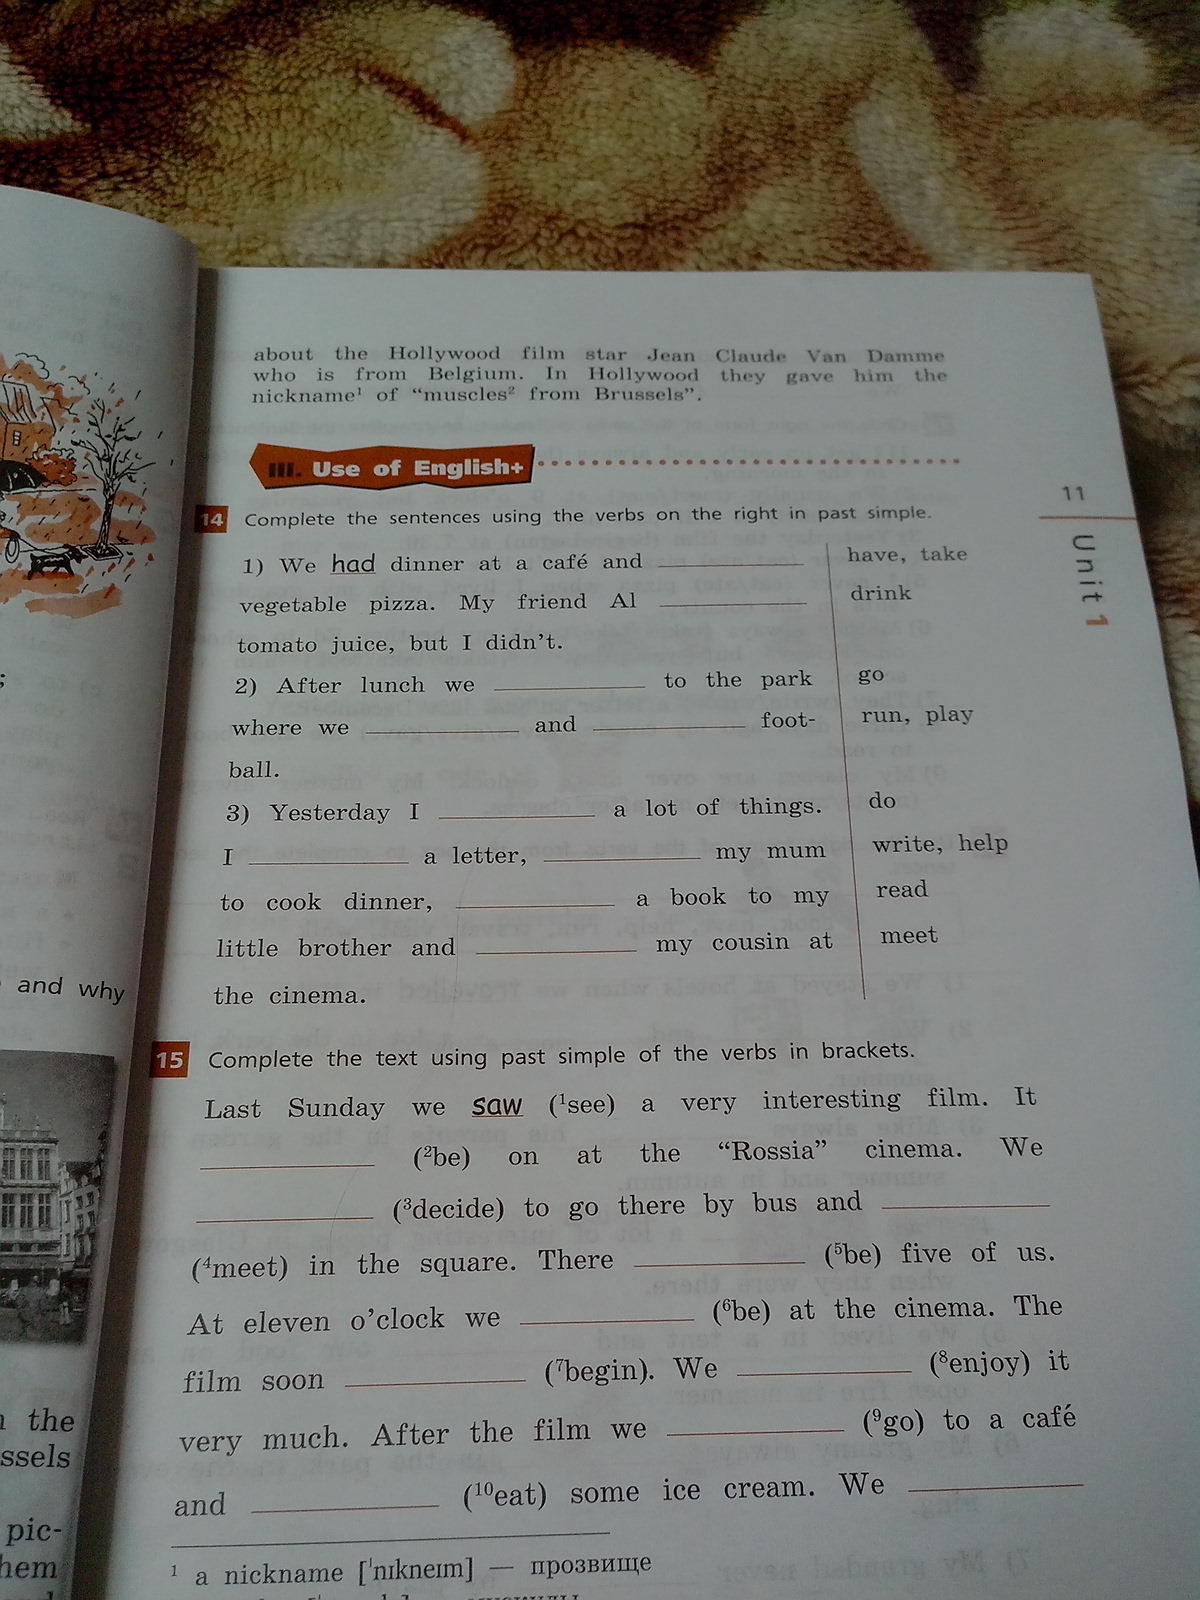 about the Hollywood film star Jean Claude Van Damme
who is from Belgium. In Hollywood they gave him the
nickname¹ of “muscles² from Brussels”.
III. Use of English+
11
Unit 1
14 Complete the sentences using the verbs on the right in past simple.
1) We had dinner at a café and ________ have, take
vegetable pizza. My friend Al ________ drink
tomato juice, but I didn’t.
2) After lunch we ________ to the park go
where we ________ and ________ foot- run, play
ball.
3) Yesterday I ________ a lot of things. do
I ________ a letter, ________ my mum write, help
to cook dinner, ________ a book to my read
little brother and ________ my cousin at meet
the cinema.
15 Complete the text using past simple of the verbs in brackets.
Last Sunday we saw (¹see) a very interesting film. It
________ (²be) on at the “Rossia” cinema. We
________ (³decide) to go there by bus and ________
(⁴meet) in the square. There ________ (⁵be) five of us.
At eleven o’clock we ________ (⁶be) at the cinema. The
film soon ________ (⁷begin). We ________ (⁸enjoy) it
very much. After the film we ________ (⁹go) to a café
and ________ (¹⁰eat) some ice cream. We ________
¹ a nickname [ˈnɪkneɪm] — прозвище
and why
the
ssels
pic-
hem